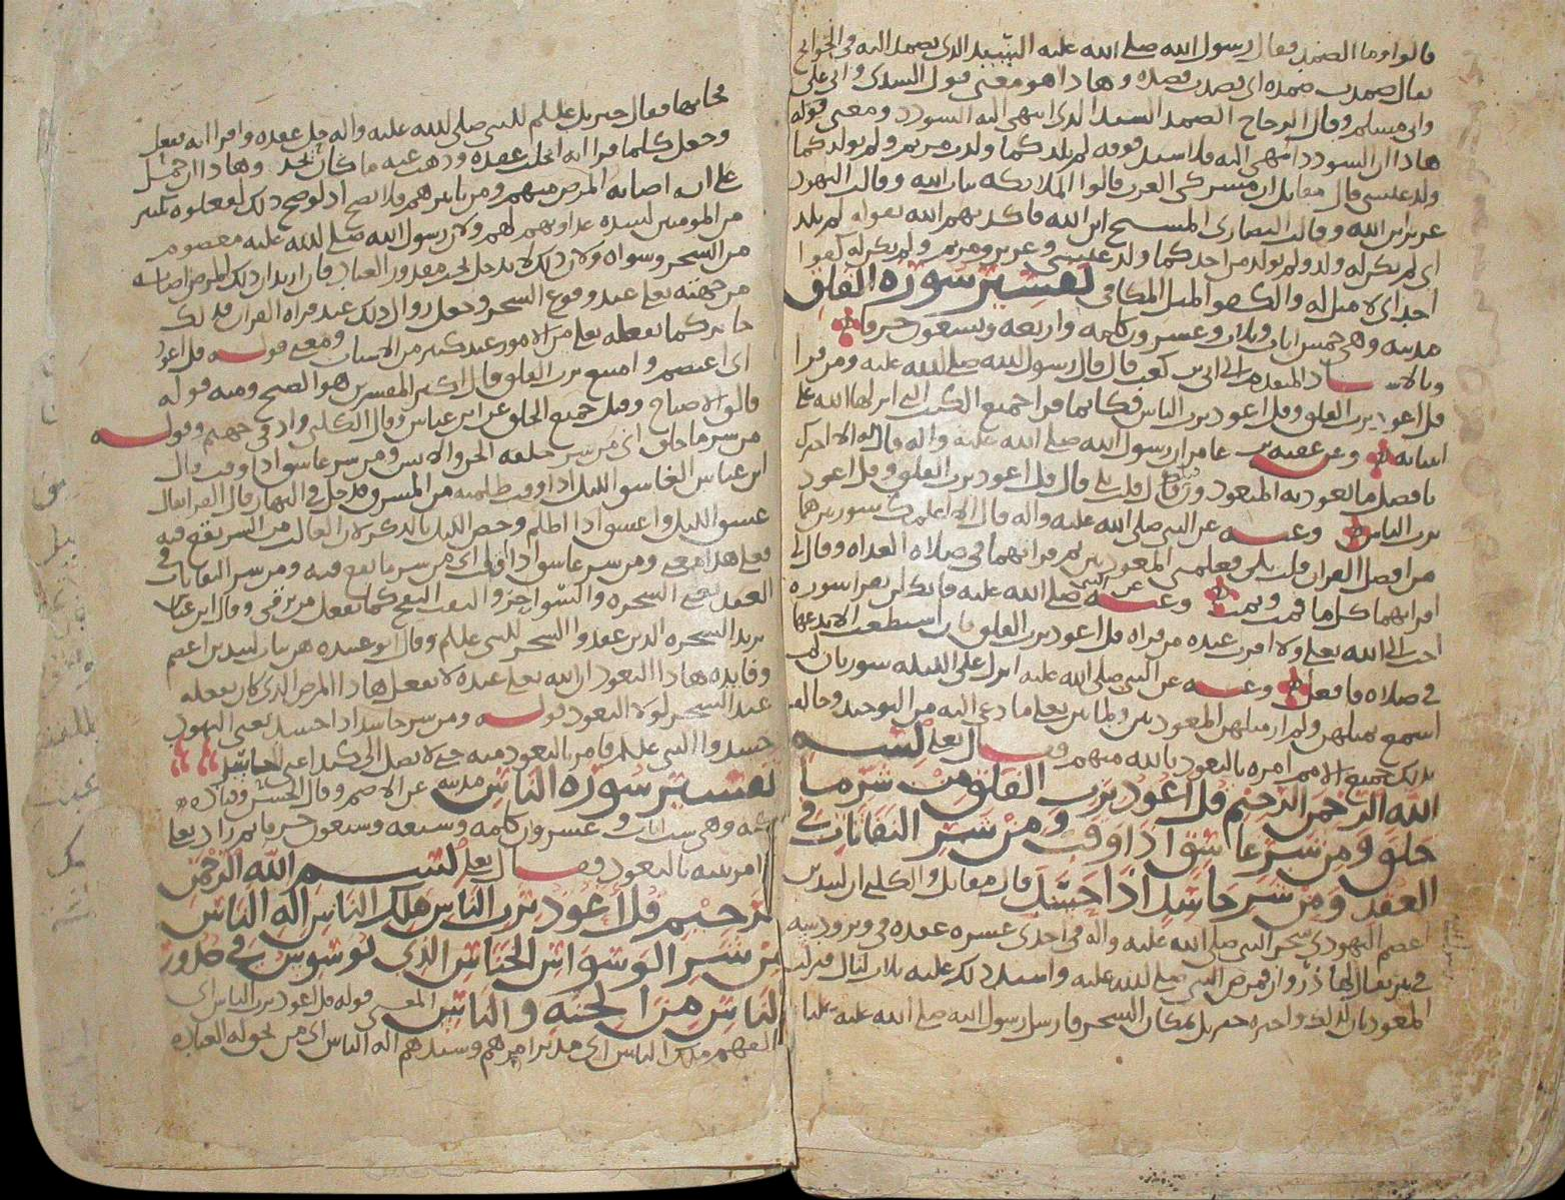 قالوا وما الصمد فقال رسول الله صلى الله عليه السيد الذي يصمد اليه في الحوايج
يقال صمدت صمده اي قصدت قصده وهاذا هو معنى قول السدي وابي علي
وابي مسلم وقال الزجاج الصمد السيد الذي انتهى اليه السودد ومعنى قوله
هاذا ان السودد انتهى اليه فلا سيد فوقه لم يلد كما ولدت مريم ولم يولد كما
ولد عيسى قال مقاتل ان مشركي العرب قالوا الملايكه بنات الله وقالت اليهود
عزير ابن الله وقالت النصارى المسيح ابن الله فاكذبهم الله بقوله لم يلد
اي لم يكن له ولد ولم يولد من احد كما ولد عيسى وعزير ومريم ولم يكن له كفوا
احد اي لا مثل له والكفو المثل المكافي تفسير سوره الفلق
مدنيه وهي خمس ايات وثلاث وعشرون كلمه واربعه وتسعون حرفا
وبالاسناد المتقدم الى ابي بن كعب قال قال رسول الله صلى الله عليه ومن قرا
قل اعوذ برب الفلق وقل اعوذ برب الناس فكانما قرا جميع الكتب التي انزلها الله على
انبيايه وعن عقبه بن عامر ان رسول الله صلى الله عليه واله قال له الا اخبرك
بافضل ما تعوذ به المتعوذون قلت بلى قال قل اعوذ برب الفلق وقل اعوذ
برب الناس وعنه عن النبي صلى الله عليه واله قال الا اعلمك سورتين هما
من افضل القران قلت بلى فعلمني المعوذتين ثم قرا بهما في صلاه الغداه وقال لي
اقراهما كل ما قمت ونمت وعنه عن النبي صلى الله عليه فانك لن تقرا سوره
احب الى الله تعالى ولا اقرب عنده من قراه قل اعوذ برب الفلق فان استطعت الا تدعها
في صلاه فافعل وعنه عن النبي صلى الله عليه انزل علي الليله سورتان لم
اسمع بمثلهن ولم ار مثلهن المعوذتين ولما بين تعالى ما دعي اليه من التوحيد وخالف
الامم امره بالتعوذ بالله منهم فقال تعالى بسم
الله الرحمن الرحيم قل اعوذ برب الفلق من شر ما
خلق ومن شر غاسق اذا وقب ومن شر النفاثات في
العقد ومن شر حاسد اذا حسد قال مقاتل والكلبي ان لبيد بن
اعصم اليهودي سحر النبي صلى الله عليه واله في احدى عشره عقده في وتر ودسه
في بير يقال لها ذروان فمرض النبي صلى الله عليه واشتد ذلك عليه ثلاث ليال فنزلت
المعوذتان لذلك واخبره جبريل بمكان السحر فارسل رسول الله صلى الله عليه عليا
فجا بها فقال جبريل عليلم للنبي صلى الله عليه واله حل عقده واقرا ايه ففعل
وجعل كلما قرا ايه انحلت عقده وذهب عنه ما كان يجد وهاذا ان حمل
على انه اصابه المرض منهم ومن تاثيرهم فلا يصح اذ لو صح ذلك لفعلوه بكثير
من المومنين لشده عداوتهم لهم ولان رسول الله صلى الله عليه معصوم
من السحر وسواه ولان ذلك لا يدخل تحت مقدور العباد فان اريد ان ذلك المرض اصابه
من جهته تعالى عند وقوع السحر وجعل زوال ذلك عند قراه القران فذلك
جايز كما يفعله تعالى من الامور عند كثير من الاسباب ومعنى قوله قل اعوذ
اي اعتصم وامتنع برب الفلق قال اكثر المفسرين هو الصبح ومنه قوله
فالق الاصباح وقيل جميع الخلق عن ابن عباس وقال الكلبي واد في جهنم وقوله
من شر ما خلق اي من شر خلقه الجن والانس ومن شر غاسق اذا وقب قال
ابن عباس الغاسق الليل اذا اوقب ظلمته من المشرق ودخل في النهار قال الفرا يقال
غسق الليل واغسق اذا اظلم وخص الليل بالذكر لان الغالب من الشر يقع فيه
فعلى هذا معنى ومن شر غاسق اذا وقب اي من شر ما يقع فيه ومن شر النفاثات في
العقد يعني السحره والسواحر والنفث النفخ كما يفعل من يرقي وقال ابن عباس
يريد السحره الذين عقدوا السحر للنبي عليلم وقال ابو عبيده هن بنات لبيد بن اعصم
وفايده هاذا التعوذ ان الله تعالى عنده لا يفعل هاذا المرض الذي كان يفعله
عند السحر لولا التعوذ قوله ومن شر حاسد اذا حسد يعني اليهود
حسدوا النبي عليلم فامر بالتعوذ منه حتى لا يصل الى كيد اعني الحاسد
تفسير سوره الناس مدنيه عن الاصم وقال الحسن وقتاده
وهي ست ايات وعشرون كلمه وتسعه وسبعون حرفا ثم زاد تعالى
امر نبيه بالتعوذ فقال تعالى بسم الله الرحمن
الرحيم قل اعوذ برب الناس ملك الناس اله الناس
من شر الوسواس الخناس الذي يوسوس في صدور
الناس من الجنه والناس المعنى قوله قل اعوذ برب الناس اي
الههم ملك الناس اي مدبر امرهم وسيدهم اله الناس اي من تحق له العباده